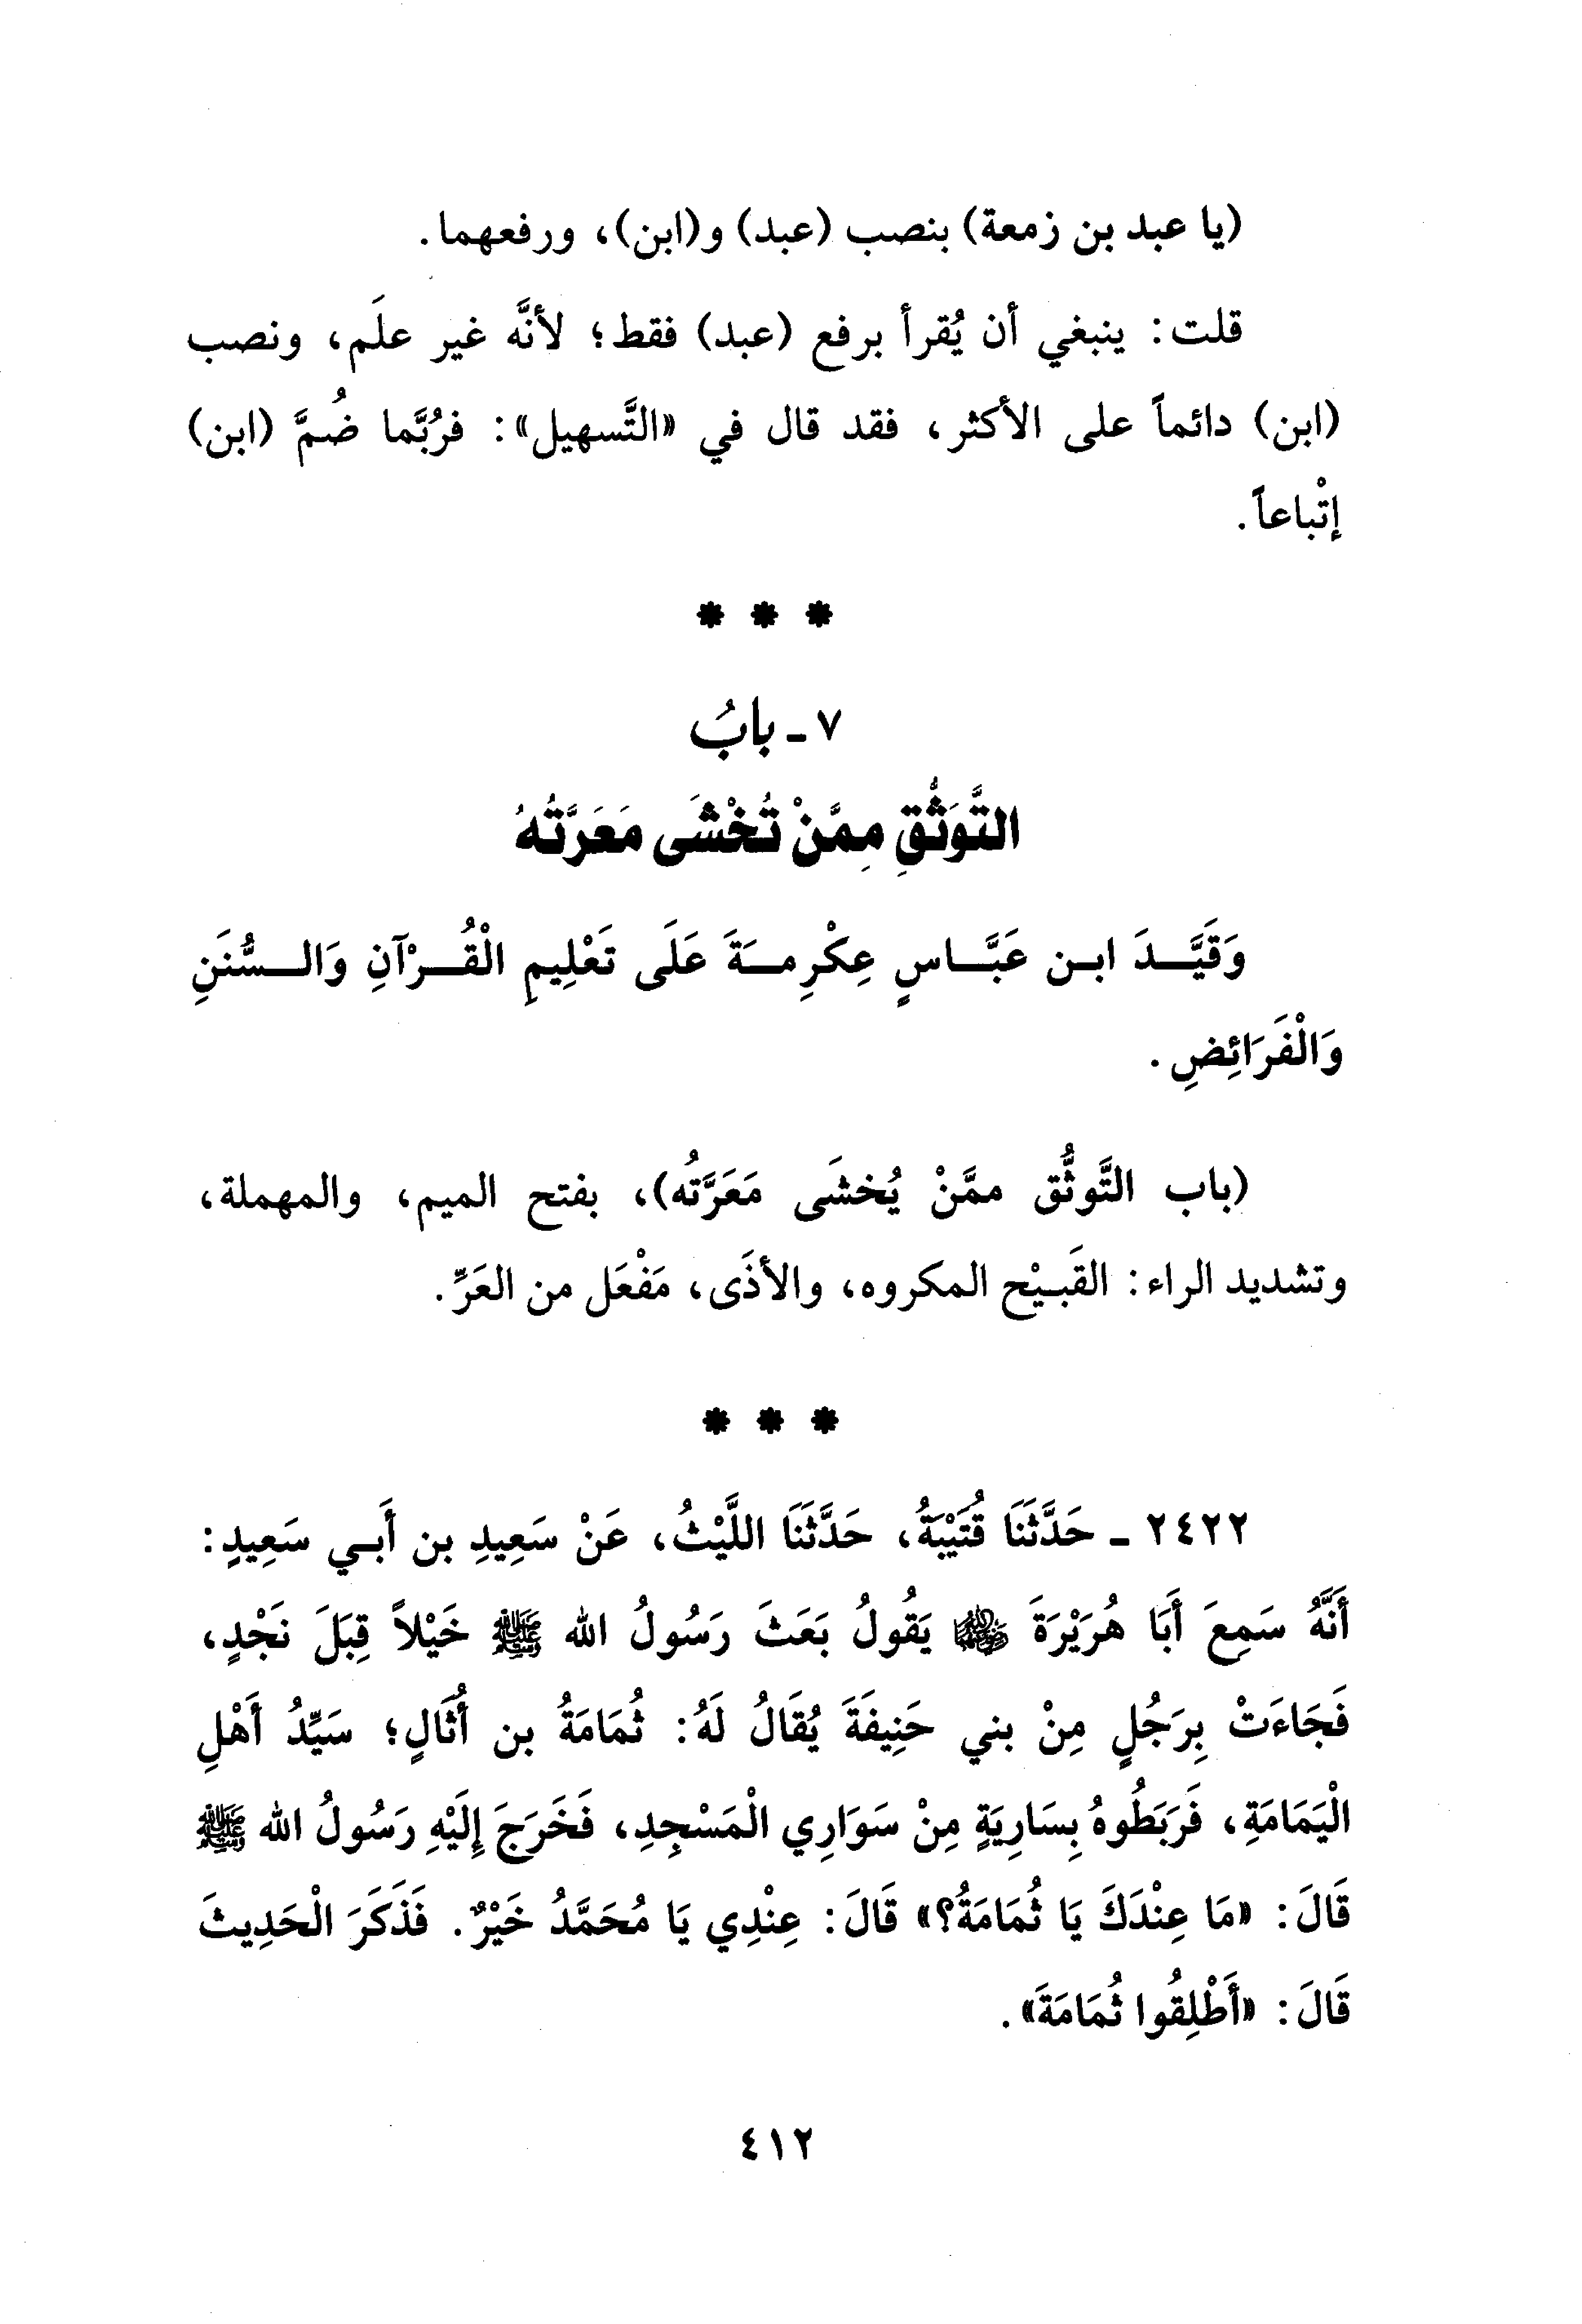 (يا عبد بن زمعة) بنصب (عبد) و(ابن)، ورفعهما.
قلت: ينبغي أن يُقرأ برفع (عبد) فقط؛ لأنَّه غير علَم، ونصب
(ابن) دائماً على الأكثر، فقد قال في «التَّسهيل»: فرُبَّما ضُمَّ (ابن)
إتْباعاً.
* * *
٧ - بابُ
التَّوَثُّقِ مِمَّنْ تُخْشَى مَعَرَّتُهُ
وَقَيَّـدَ ابـن عَبَّـاسٍ عِكْرِمـةَ عَلَى تَعْلِيمِ الْقُـرْآنِ وَالـسُّنَنِ
وَالْفَرَائِضِ.
(باب التَّوثُّق ممَّنْ يُخشَى مَعَرَّتُه)، بفتح الميم، والمهملة،
وتشديد الراء: القَبيْح المكروه، والأذَى، مَفْعَل من العَرِّ.
* * *
٢٤٢٢ - حَدَّثَنَا قُتَيْبَةُ، حَدَّثَنَا اللَّيْثُ، عَنْ سَعِيدِ بن أَبـي سَعِيدٍ:
أَنَّهُ سَمِعَ أَبَا هُرَيْرَةَ ﵁ يَقُولُ بَعَثَ رَسُولُ الله ﷺ خَيْلاً قِبَلَ نَجْدٍ،
فَجَاءَتْ بِرَجُلٍ مِنْ بني حَنِيفَةَ يُقَالُ لَهُ: ثُمَامَةُ بن أُثَالٍ؛ سَيِّدُ أَهْلِ
الْيَمَامَةِ، فَرَبَطُوهُ بِسَارِيَةٍ مِنْ سَوَارِي الْمَسْجِدِ، فَخَرَجَ إِلَيْهِ رَسُولُ الله ﷺ
قَالَ: «مَا عِنْدَكَ يَا ثُمَامَةُ؟» قَالَ: عِنْدِي يَا مُحَمَّدُ خَيْرٌ. فَذَكَرَ الْحَدِيثَ
قَالَ: «أَطْلِقُوا ثُمَامَةَ».
٤١٢